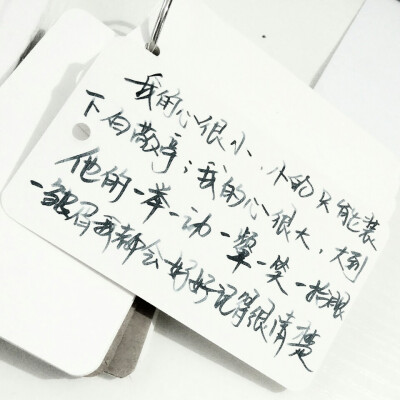 我的心很小，小的只能装
下白敬亭；我的心很大，大到
他的一举一动一颦一笑一抬眼
一皱眉我都会好好记得很清楚